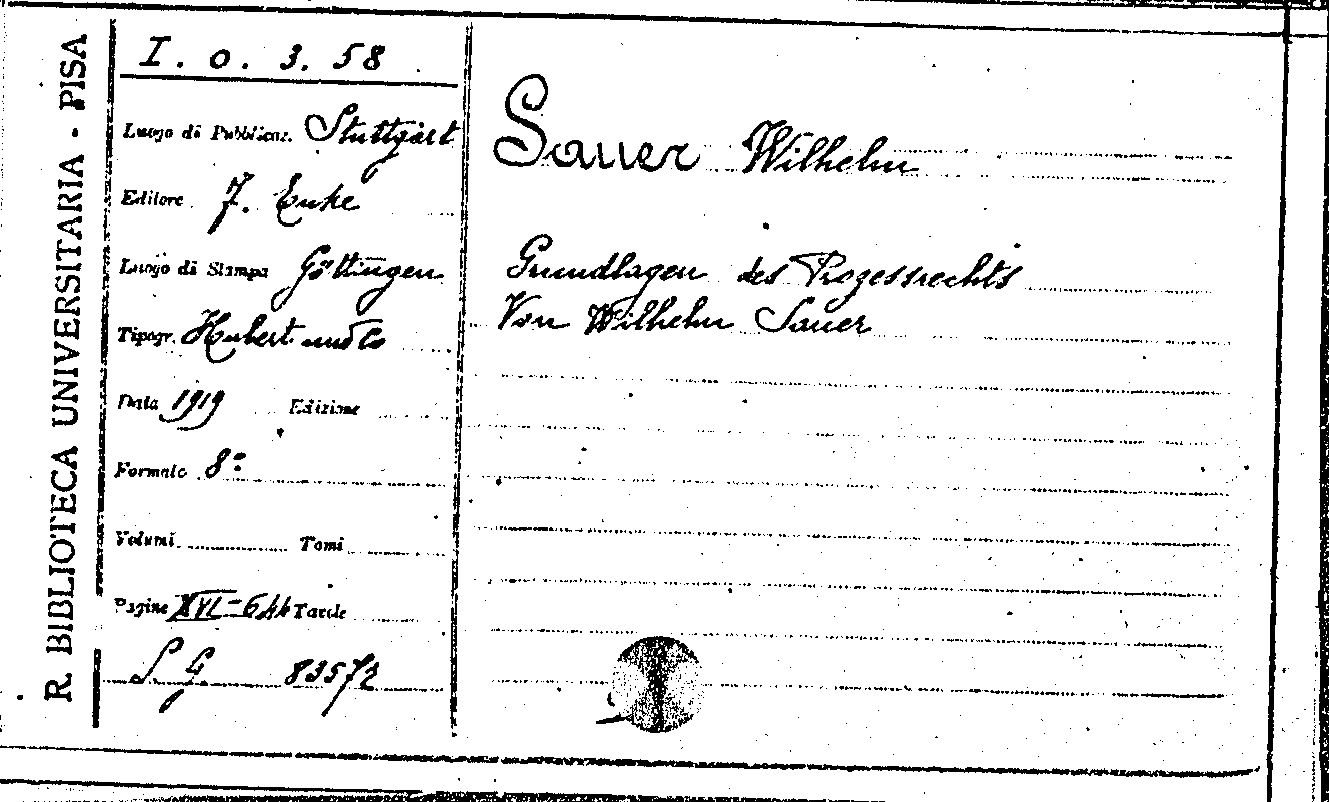 R. BIBLIOTECA UNIVERSITARIA - PISA
I. o. 3. 58
Luogo di Pubblicaz. Stuttgart
Editore F. Enke
Luogo di Stampa Göttingen
Tipogr. Hubert und Co
Data 1919 Edizione
Formato 8°
Volumi Tomi
Pagine XVI-644 Tavole
S. G. 83572
Sauer Wilhelm
Grundlagen des Prozessrechts
Von Wilhelm Sauer